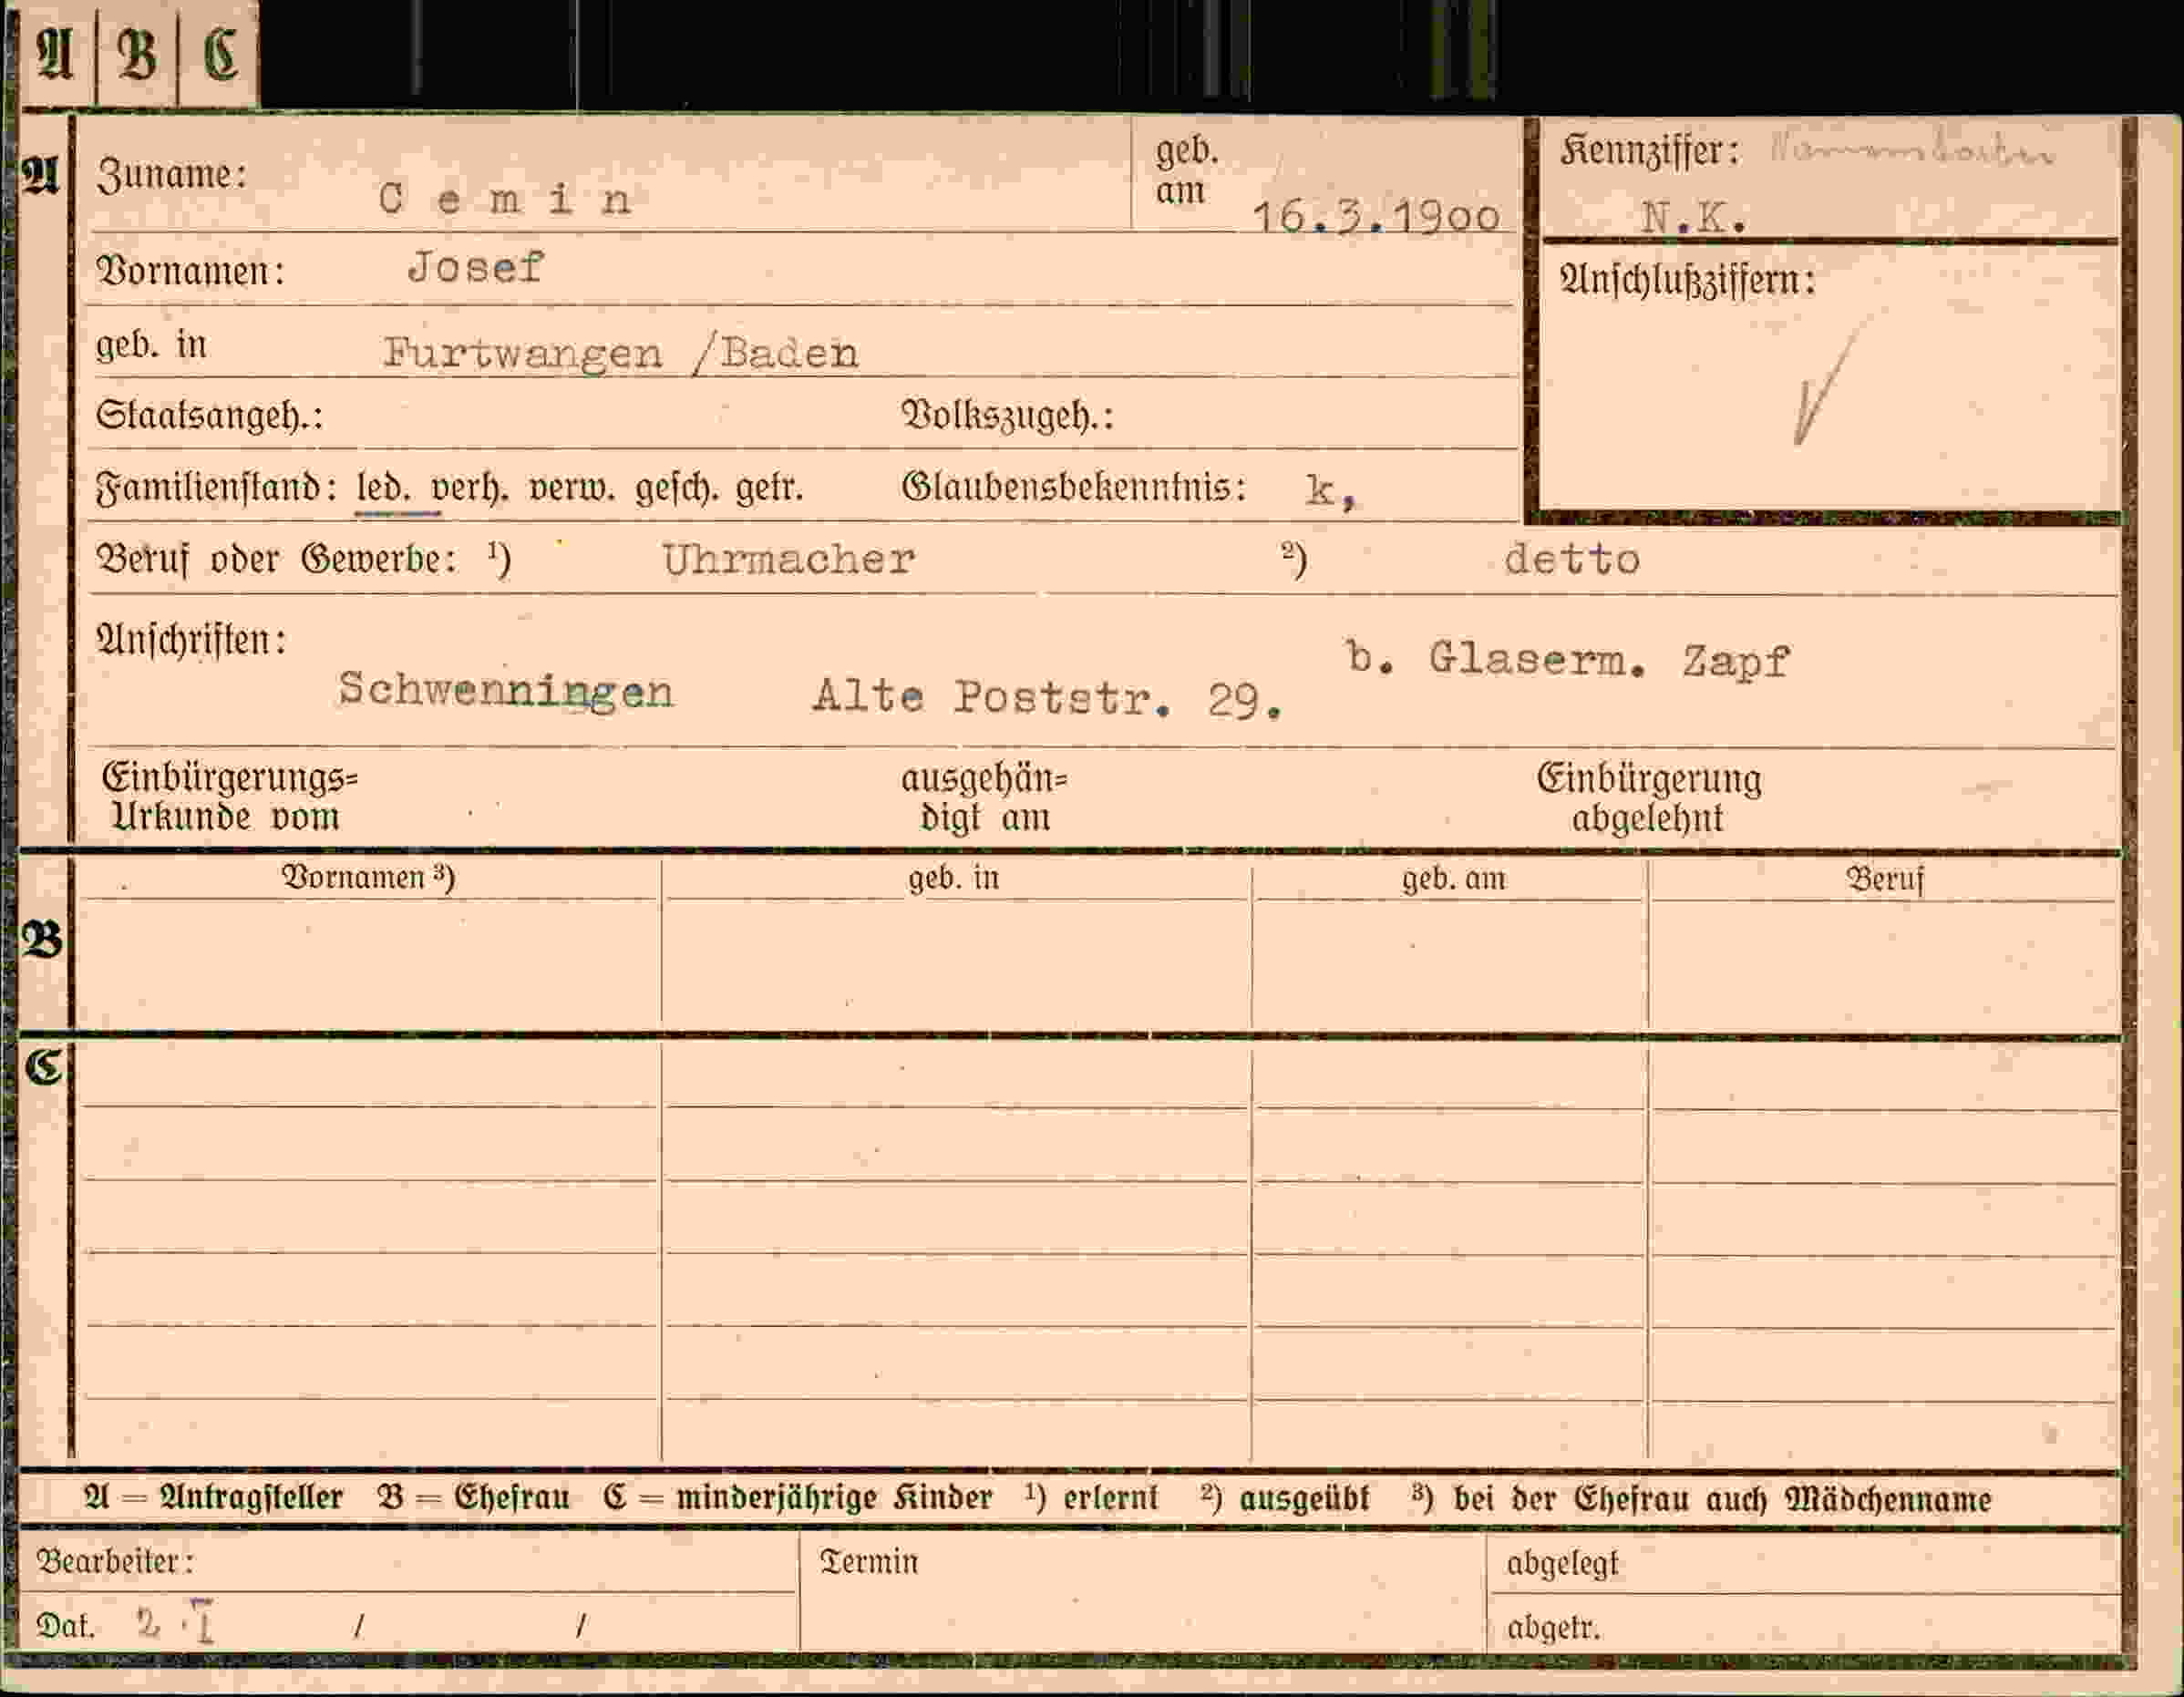 A B C
A Zuname: Cemin geb. am 16.3.1900
Kennziffer:
N.K.
Vornamen: Josef
Anschlußziffern:
geb. in Furtwangen /Baden
Staatsangeh.: Volkszugeh.:
Familienstand: led. verh. verw. gesch. getr. Glaubensbekenntnis: k,
Beruf oder Gewerbe: ¹) Uhrmacher ²) detto
Anschriften: b. Glaserm. Zapf
Schwenningen Alte Poststr. 29.
Einbürgerungs= ausgehän= Einbürgerung
Urkunde vom digt am abgelehnt
Vornamen ³) geb. in geb. am Beruf
B
C
A = Antragsteller B = Ehefrau C = minderjährige Kinder ¹) erlernt ²) ausgeübt ³) bei der Ehefrau auch Mädchenname
Bearbeiter: Termin abgelegt
Dat. 2.I / / abgetr.